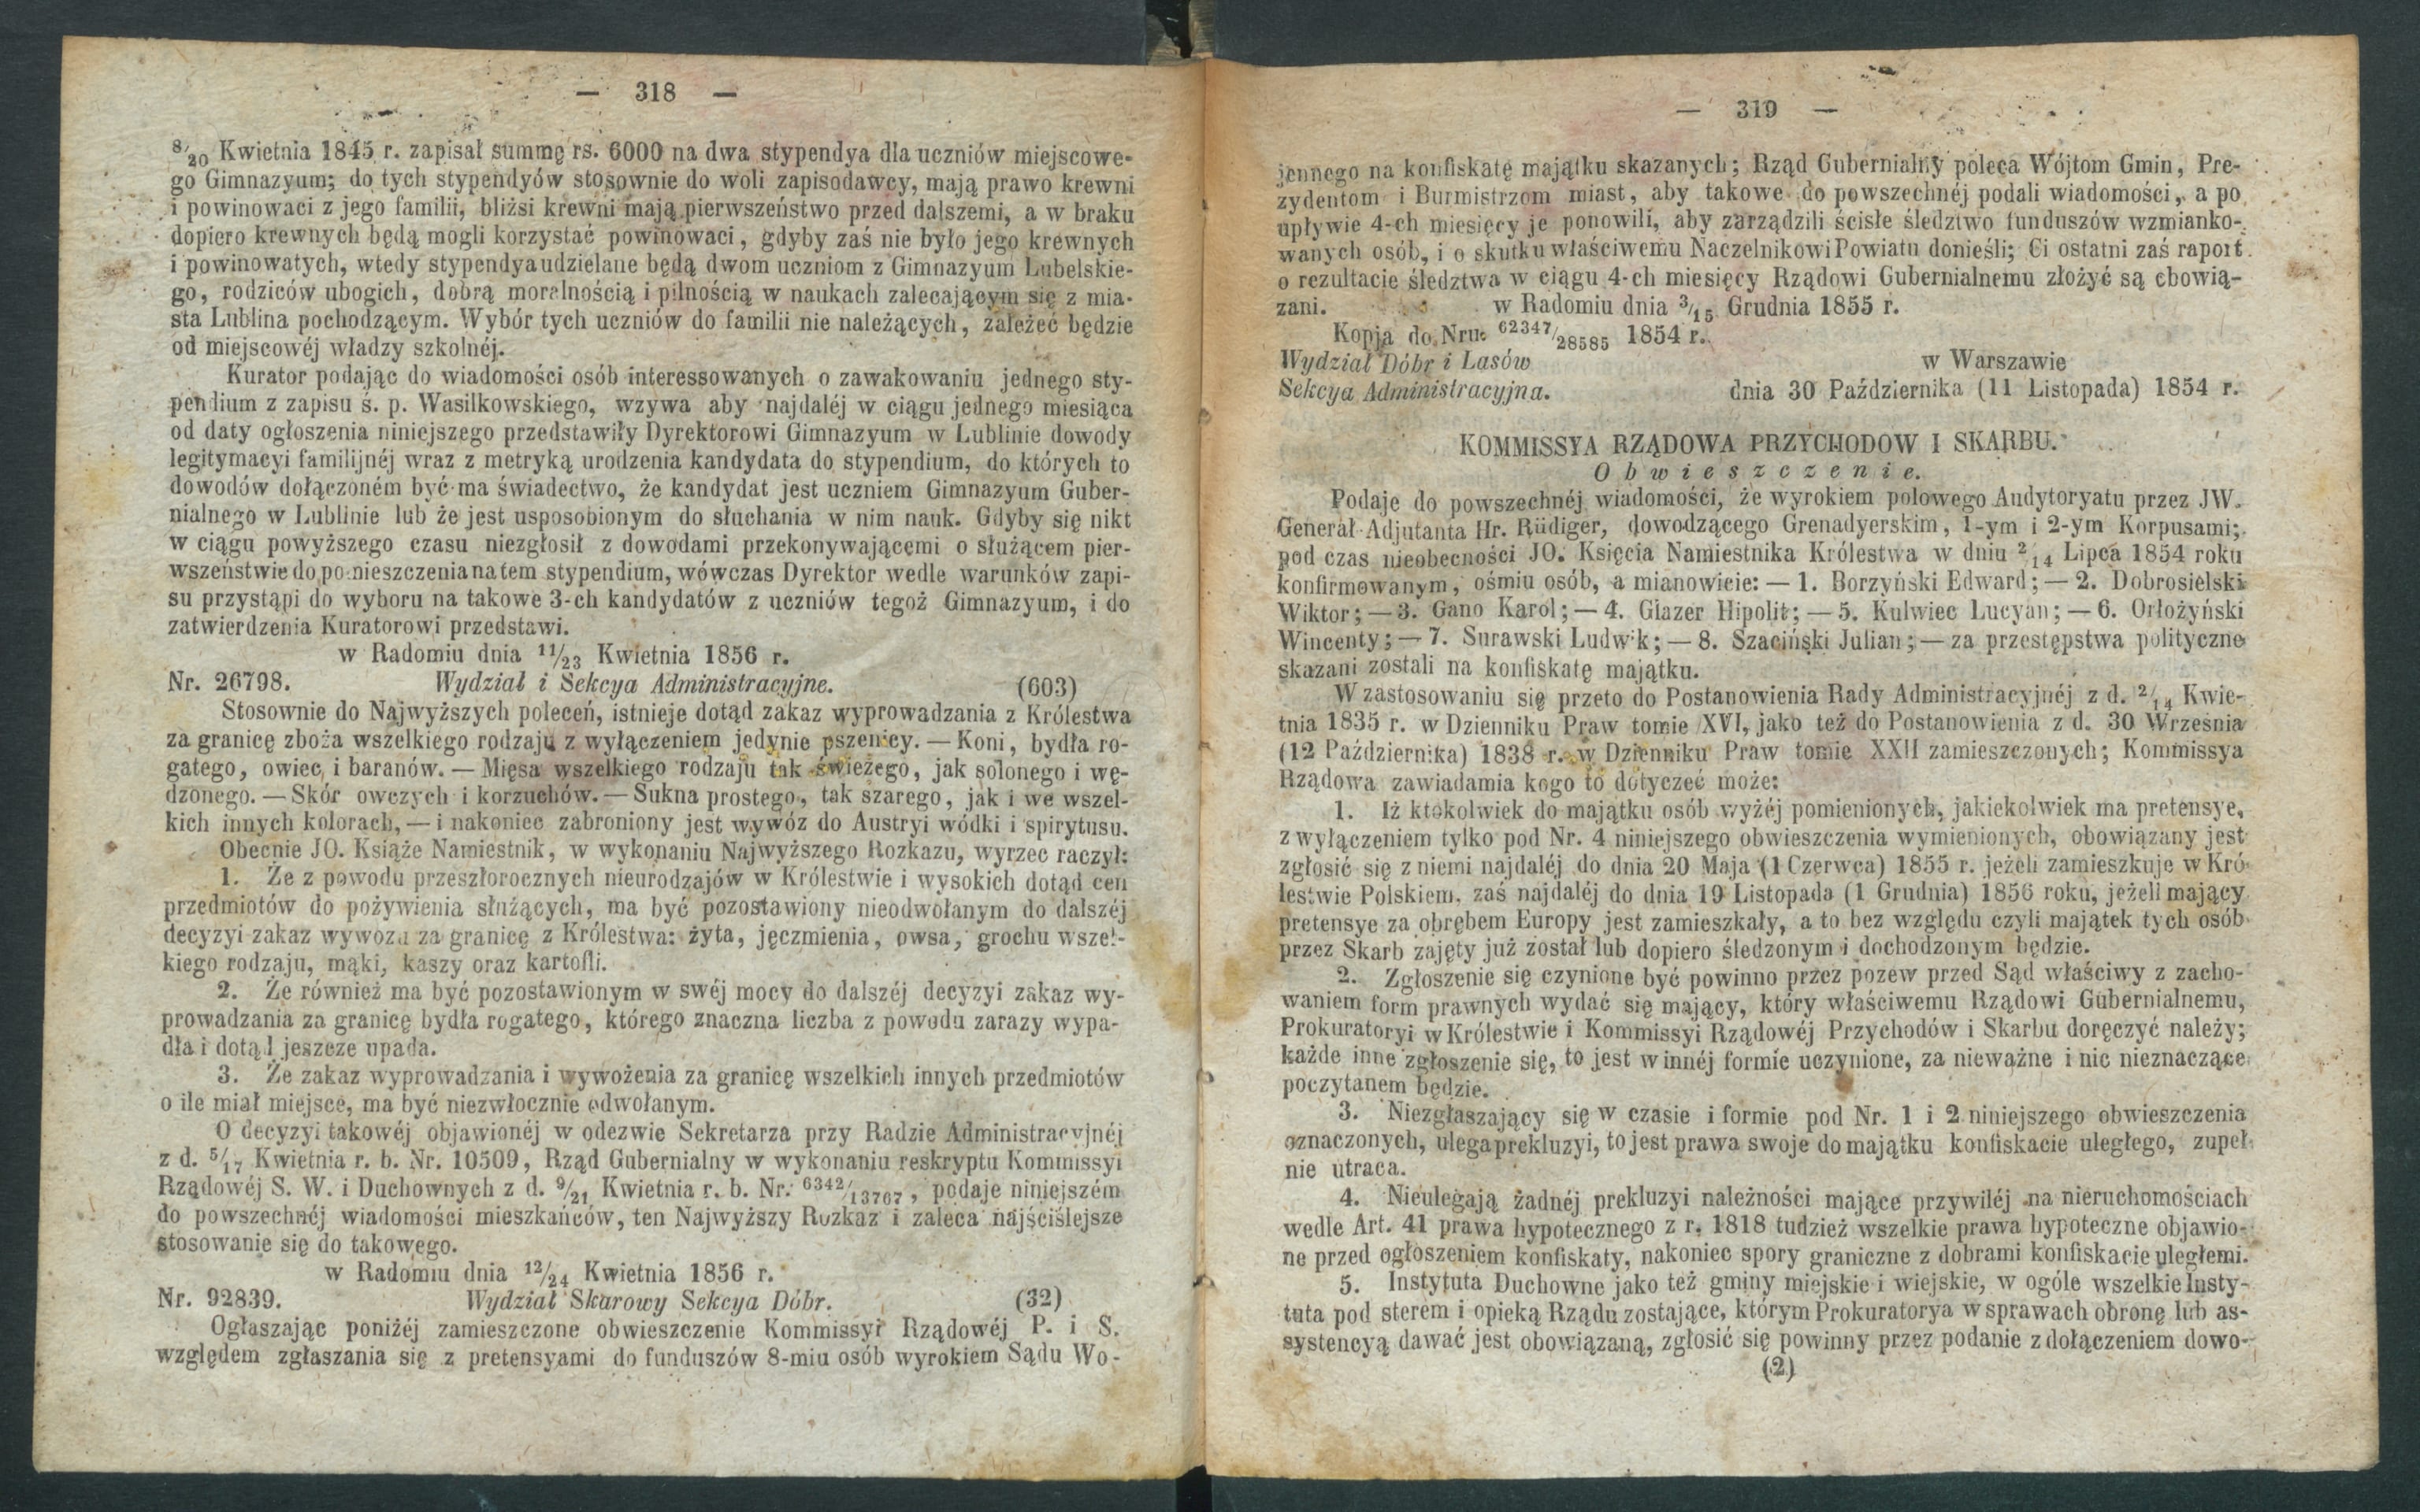 — 318 —
8/20 Kwietnia 1845 r. zapisał summę rs. 6000 na dwa stypendya dla uczniów miejscowe-
go Gimnazyum; do tych stypendyów stosownie do woli zapisodawcy, mają prawo krewni
i powinowaci z jego familii, bliżsi krewni mają pierwszeństwo przed dalszemi, a w braku
dopiero krewnych będą mogli korzystać powinowaci, gdyby zaś nie było jego krewnych
i powinowatych, wtedy stypendya udzielane będą dwom uczniom z Gimnazyum Lubelskie-
go, rodziców ubogich, dobrą moralnością i pilnością w naukach zalecającym się z mia-
sta Lublina pochodzącym. Wybór tych uczniów do familii nie należących, zależeć będzie
od miejscowéj władzy szkolnéj.
Kurator podając do wiadomości osób interessowanych o zawakowaniu jednego sty-
pendium z zapisu ś. p. Wasilkowskiego, wzywa aby najdaléj w ciągu jednego miesiąca
od daty ogłoszenia niniejszego przedstawiły Dyrektorowi Gimnazyum w Lublinie dowody
legitymacyi familijnéj wraz z metryką urodzenia kandydata do stypendium, do których to
dowodów dołączoném być ma świadectwo, że kandydat jest uczniem Gimnazyum Guber-
nialnego w Lublinie lub że jest usposobionym do słuchania w nim nauk. Gdyby się nikt
w ciągu powyższego czasu niezgłosił z dowodami przekonywającemi o służącem pier-
wszeństwie do pomieszczenia na tem stypendium, wówczas Dyrektor wedle warunków zapi-
su przystąpi do wyboru na takowe 3-ch kandydatów z uczniów tegoż Gimnazyum, i do
zatwierdzenia Kuratorowi przedstawi.
w Radomiu dnia 11/23 Kwietnia 1856 r.
Nr. 26798. Wydział i Sekcya Administracyjne. (603)
Stosownie do Najwyższych poleceń, istnieje dotąd zakaz wyprowadzania z Królestwa
za granicę zboża wszelkiego rodzaju z wyłączeniem jedynie pszenicy. — Koni, bydła ro-
gatego, owiec i baranów. — Mięsa wszelkiego rodzaju tak świeżego, jak solonego i wę-
dzonego. — Skór owczych i korzuchów. — Sukna prostego, tak szarego, jak i we wszel-
kich innych kolorach, — i nakoniec zabroniony jest wywóz do Austryi wódki i spirytusu.
Obecnie JO. Książe Namiestnik, w wykonaniu Najwyższego Rozkazu, wyrzec raczył:
1. Że z powodu przeszłorocznych nieurodzajów w Królestwie i wysokich dotąd cen
przedmiotów do pożywienia służących, ma być pozostawiony nieodwołanym do dalszéj
decyzyi zakaz wywozu za granicę z Królestwa: żyta, jęczmienia, owsa, grochu wszel-
kiego rodzaju, mąki, kaszy oraz kartofli.
2. Że również ma być pozostawionym w swéj mocy do dalszéj decyzyi zakaz wy-
prowadzania za granicę bydła rogatego, którego znaczna liczba z powodu zarazy wypa-
dła i dotąd jeszcze upada.
3. Że zakaz wyprowadzania i wywożenia za granicę wszelkich innych przedmiotów
o ile miał miejsce, ma być niezwłocznie odwołanym.
O decyzyi takowéj objawionéj w odezwie Sekretarza przy Radzie Administracyjnéj
z d. 5/17 Kwietnia r. b. Nr. 10509, Rząd Gubernialny w wykonaniu reskryptu Kommissyi
Rządowéj S. W. i Duchownych z d. 9/21 Kwietnia r. b. Nr. 6342/13767, podaje niniejszém
do powszechnéj wiadomości mieszkańców, ten Najwyższy Rozkaz i zaleca najściślejsze
stosowanie się do takowego.
w Radomiu dnia 12/24 Kwietnia 1856 r.
Nr. 92839. Wydział Skarowy Sekcya Dóbr. (32)
Ogłaszając poniżéj zamieszczone obwieszczenie Kommissyi Rządowéj P. i S.
względem zgłaszania się z pretensyami do funduszów 8-miu osób wyrokiem Sądu Wo-
— 319 —
jennego na konfiskatę majątku skazanych; Rząd Gubernialny poleca Wójtom Gmin, Pre-
zydentom i Burmistrzom miast, aby takowe do powszechnéj podali wiadomości, a po
upływie 4-ch miesięcy je ponowili, aby zarządzili ścisłe śledztwo funduszów wzmianko-
wanych osób, i o skutku właściwemu Naczelnikowi Powiatu donieśli; Ci ostatni zaś raport
o rezultacie śledztwa w ciągu 4-ch miesięcy Rządowi Gubernialnemu złożyć są obowią-
zani. w Radomiu dnia 3/15 Grudnia 1855 r.
Kopja do Nru 62347/28585 1854 r.
Wydział Dóbr i Lasów w Warszawie
Sekcya Administracyjna. dnia 30 Października (11 Listopada) 1854 r.
KOMMISSYA RZĄDOWA PRZYCHODOW I SKARBU.
Obwieszczenie.
Podaje do powszechnéj wiadomości, że wyrokiem polowego Audytoryatu przez JW.
Generał-Adjutanta Hr. Rüdiger, dowodzącego Grenadyerskim, 1-ym i 2-ym Korpusami;
pod czas nieobecności JO. Księcia Namiestnika Królestwa w dniu 2/14 Lipca 1854 roku
konfirmowanym, ośmiu osób, a mianowicie: — 1. Borzyński Edward; — 2. Dobrosielski
Wiktor; — 3. Gano Karol; — 4. Glazer Hipolit; — 5. Kulwiec Lucyan; — 6. Orłożyński
Wincenty; — 7. Surawski Ludwik; — 8. Szaciński Julian; — za przestępstwa polityczne
skazani zostali na konfiskatę majątku.
W zastosowaniu się przeto do Postanowienia Rady Administracyjnéj z d. 2/14 Kwie-
tnia 1835 r. w Dzienniku Praw tomie XVI, jako też do Postanowienia z d. 30 Września
(12 Października) 1838 r. w Dzienniku Praw tomie XXII zamieszczonych; Kommissya
Rządowa zawiadamia kogo to dotyczeć może:
1. Iż ktokolwiek do majątku osób wyżéj pomienionych, jakiekolwiek ma pretensye,
z wyłączeniem tylko pod Nr. 4 niniejszego obwieszczenia wymienionych, obowiązany jest
zgłosić się z niemi najdaléj do dnia 20 Maja (1 Czerwca) 1855 r. jeżeli zamieszkuje w Kró-
lestwie Polskiem, zaś najdaléj do dnia 19 Listopada (1 Grudnia) 1856 roku, jeżeli mający
pretensye za obrębem Europy jest zamieszkały, a to bez względu czyli majątek tych osób
przez Skarb zajęty już został lub dopiero śledzonym i dochodzonym będzie.
2. Zgłoszenie się czynione być powinno przez pozew przed Sąd właściwy z zacho-
waniem form prawnych wydać się mający, który właściwemu Rządowi Gubernialnemu,
Prokuratoryi w Królestwie i Kommissyi Rządowéj Przychodów i Skarbu doręczyć należy;
każde inne zgłoszenie się, to jest w innéj formie uczynione, za nieważne i nic nieznaczące
poczytanem będzie.
3. Niezgłaszający się w czasie i formie pod Nr. 1 i 2 niniejszego obwieszczenia
oznaczonych, ulega prekluzyi, to jest prawa swoje do majątku konfiskacie uległego, zupeł-
nie utraca.
4. Nieulegają żadnéj prekluzyi należności mające przywiléj na nieruchomościach
wedle Art. 41 prawa hypotecznego z r. 1818 tudzież wszelkie prawa hypoteczne objawio-
ne przed ogłoszeniem konfiskaty, nakoniec spory graniczne z dobrami konfiskacie uległemi.
5. Instytuta Duchowne jako też gminy miejskie i wiejskie, w ogóle wszelkie Insty-
tuta pod sterem i opieką Rządu zostające, którym Prokuratorya w sprawach obronę lub as-
systencyą dawać jest obowiązaną, zgłosić się powinny przez podanie z dołączeniem dowo-
(2)